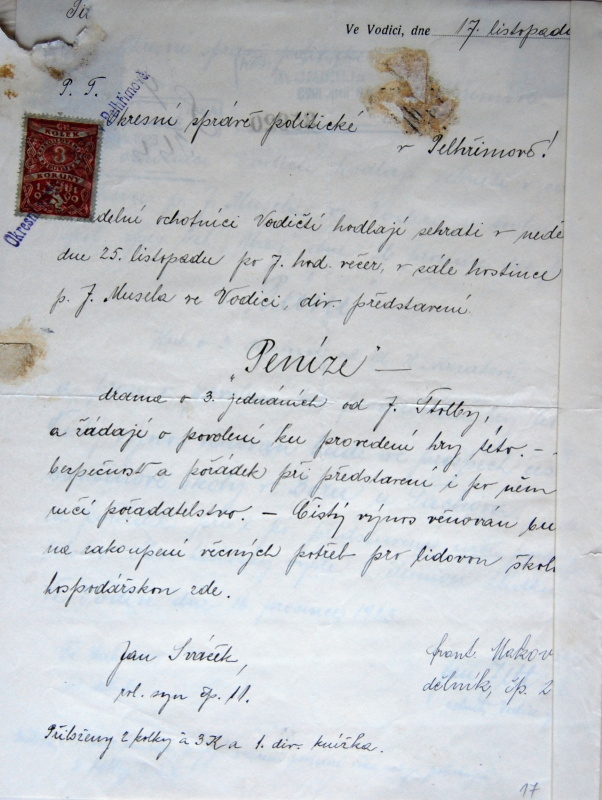 Ve Vodici, dne 17. listopadu
P. T.
Okresní správě politické
v Pelhřimově!
Pelhřimově.
ČS.
KOLEK
3
KORUNY
Okresn
dělní ochotníci Vodičtí hodlají sehráti v nedě
dne 25. listopadu po 7. hod. večer, v sále hostince
p. J. Musela ve Vodici, div. představení
"Peníze" —
drama o 3. jednáních od J. Štolby,
a žádají o povolení ku provedení hry této. —
bezpečnost a pořádek při představení i po něm
ručí pořadatelstvo. — Čistý výnos věnován bu
na zakoupení věcných potřeb pro lidovou škol
hospodářskou zde.
Jan Sváček,
rol. syn čp. 11.
Frant. Makov
dělník, čp. 2
Přiloženy 2 kolky à 3 K a 1. div. knížka.
17